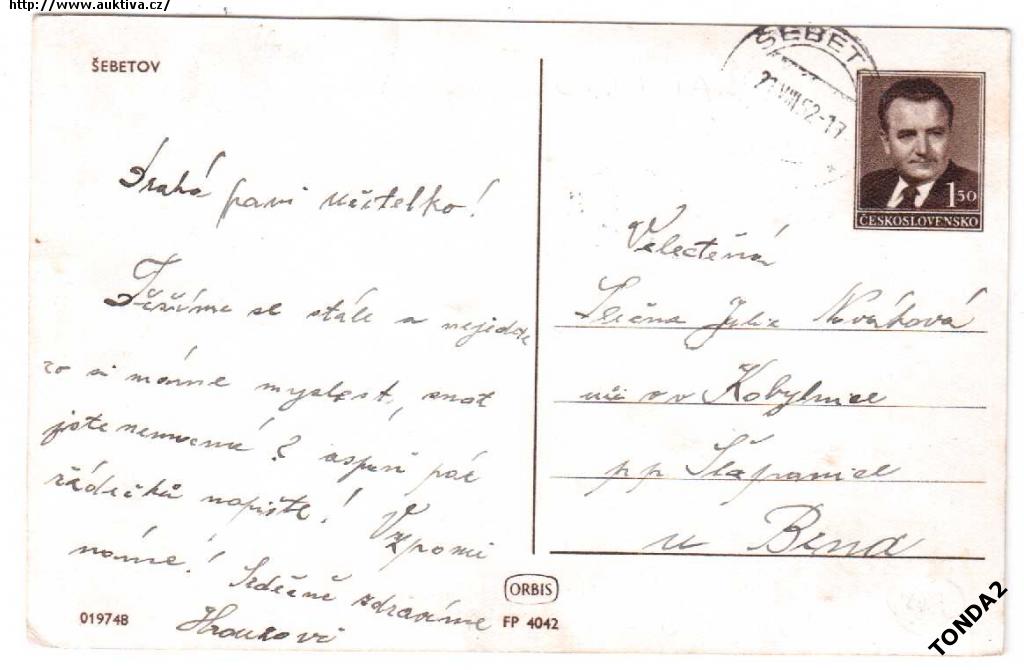 http://www.auktiva.cz/
ŠEBETOV
ŠEBETO
VIII.52-17
1 50
ČESKOSLOVENSKO
Drahá paní učitelko!
Těšíme se stále a nejdde
co si máme myslest, snat
jste nemocná? aspoň pár
řádečků napište! Vzpomí
náme! Srdečně zdravíme
Velectěná
Slečna Julie Nováková
v Kobylnice
pp Šlapanice
u Brna
ORBIS
01974B
FP 4042
TONDA2